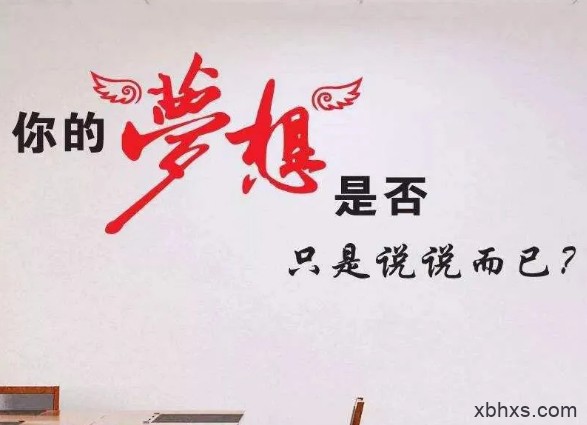 你的夢想是否
只是说说而已?
xbhxs.com